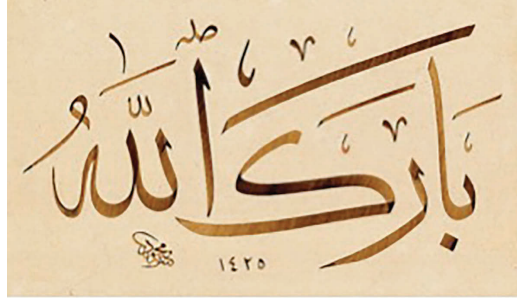 بَارَكَ ٱللَّهُ
١٤٢٥